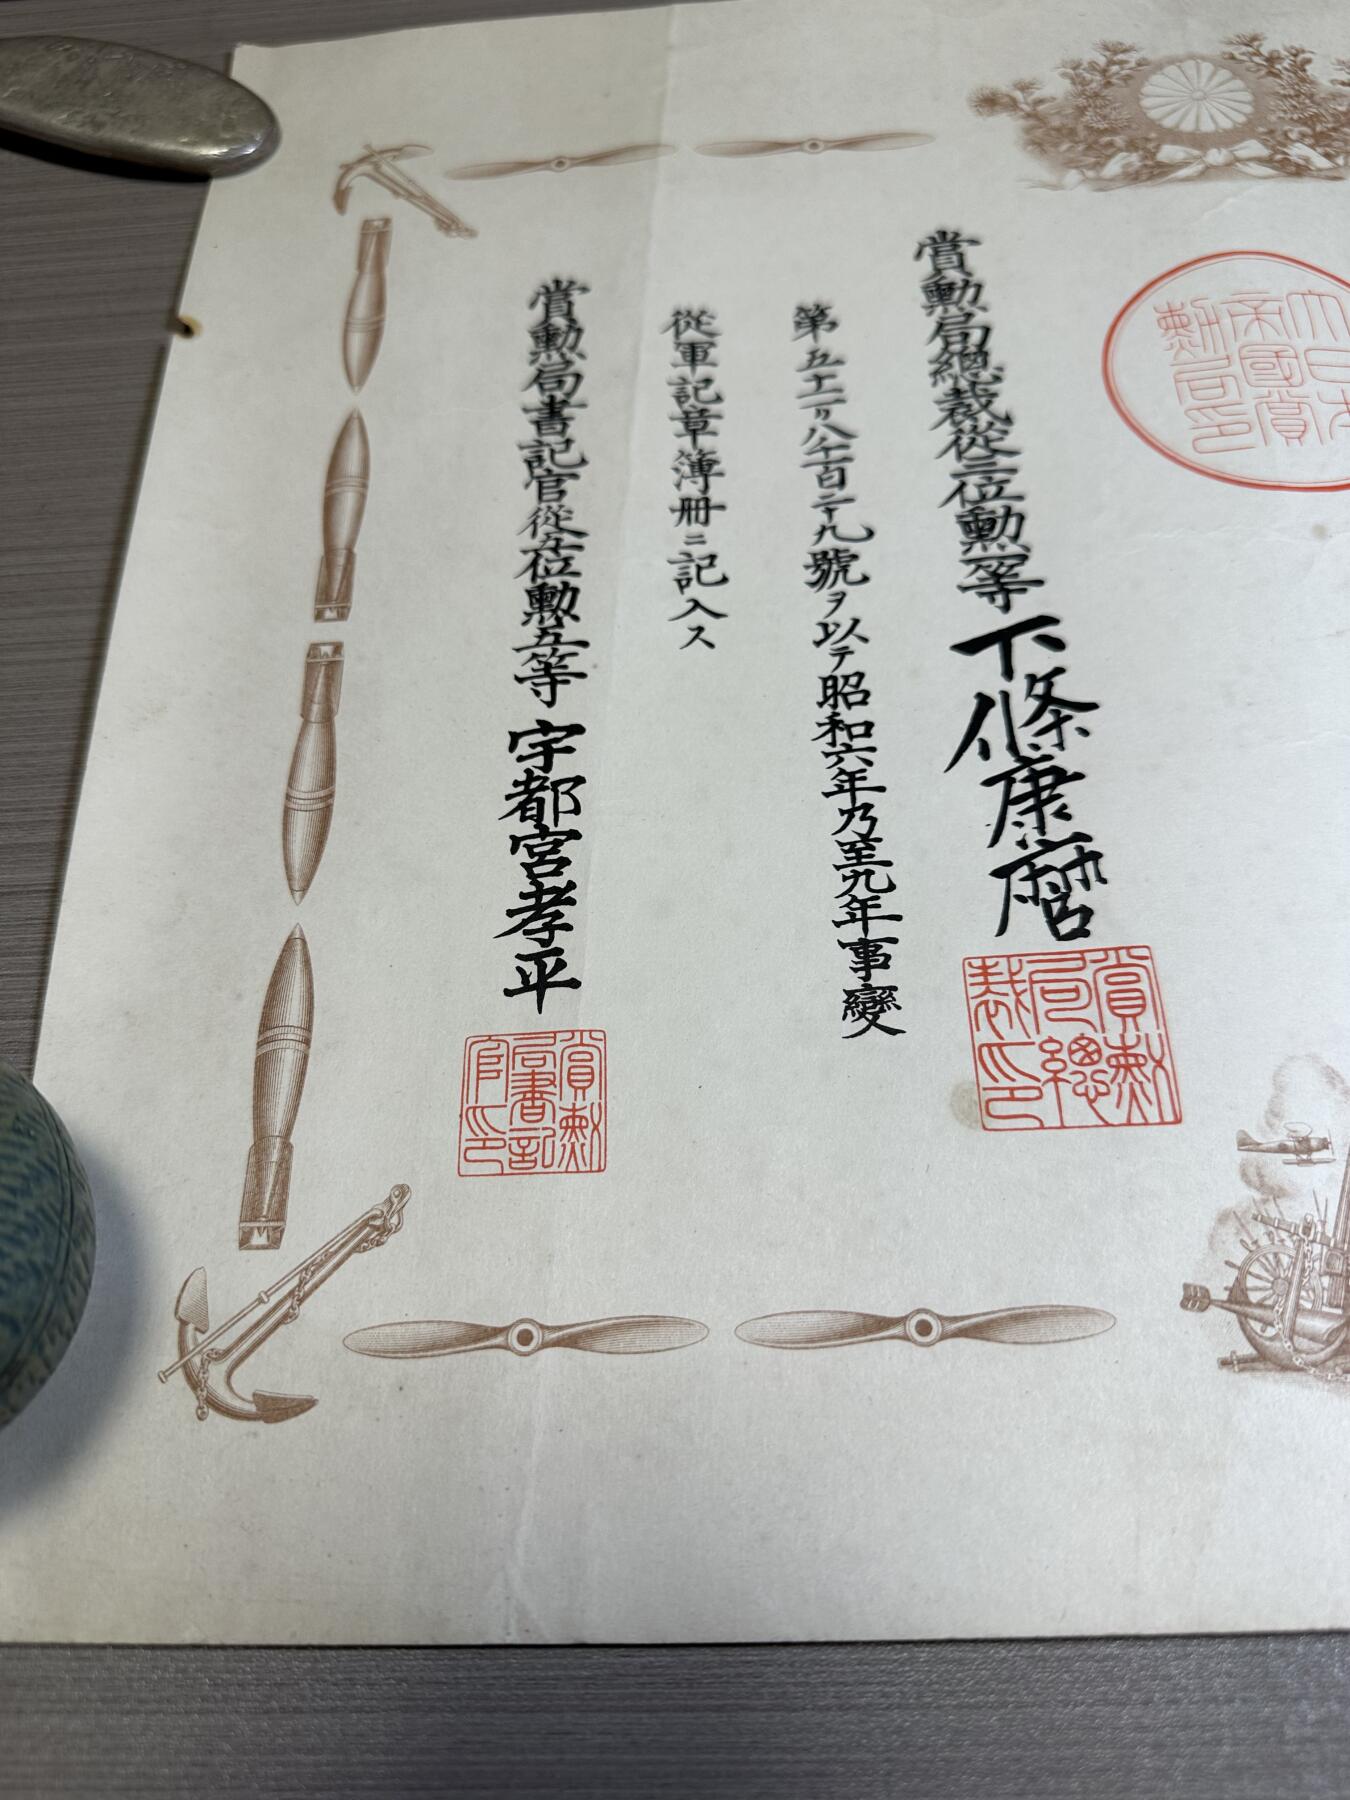 大日本
帝國賞
勳局印
賞勳局總裁從三位勳一等下條康麿
賞勳
局總
裁印
第五十一万八千百二十九號ヲ以テ昭和六年乃至九年事變
從軍記章簿冊ニ記入ス
賞勳局書記官從五位勳五等宇都宮孝平
賞勳
局書記
官印